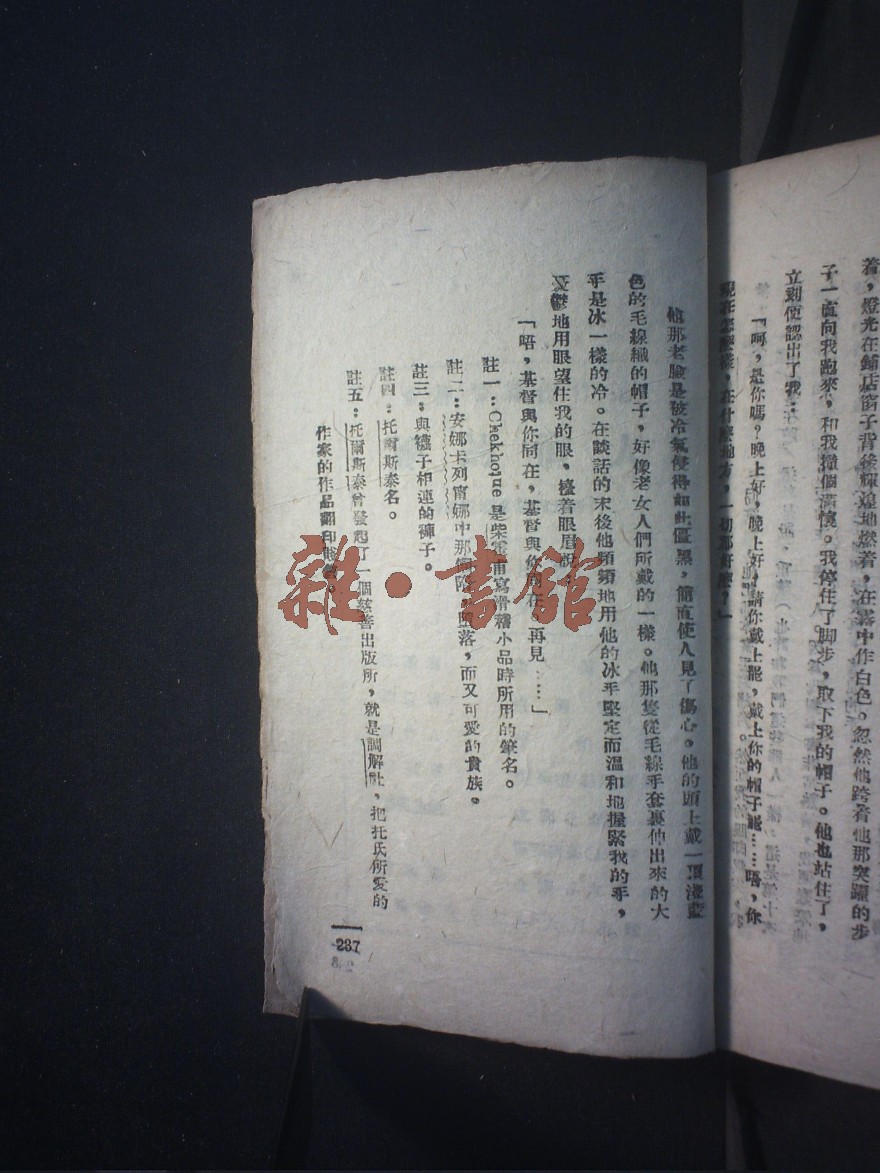 着，燈光在鋪店窗子背後輝煌地燃着，在霧中作白色。忽然他跨着他那突躍的步
子一直向我跑來，和我撞個滿懷。我停住了脚步，取下我的帽子。他也站住了，
立刻便認出了我：
「啊，是你嗎？晚上好，晚上好，請你戴上罷，戴上你的帽子罷……唔，你
現在怎麽樣，在什麽地方，一切都好麽？」
他那老臉是被冷氣侵得如此僵黑，簡直使人見了傷心。他的頭上戴一頂淺藍
色的毛線織的帽子，好像老女人們所戴的一樣。他那隻從毛線手套裏伸出來的大
手是冰一樣的冷。在談話的末後他頻頻地用他的冰手堅定而溫和地握緊我的手，
憂鬱地用眼望住我的眼，擡着眼眉說：
「唔，基督與你同在，基督與你同在，再見……」
註一：Chekhoque 是柴霍甫寫滑稽小品時所用的筆名。
註二：安娜卡列甯娜中那 墮落，而又可愛的貴族。
註三：與襪子相連的褲子。
註四：托爾斯泰名。
註五：托爾斯泰曾發起了一個慈善出版所，就是調解社，把托氏所愛的
作家的作品翻印賤售。
237
雜·書館